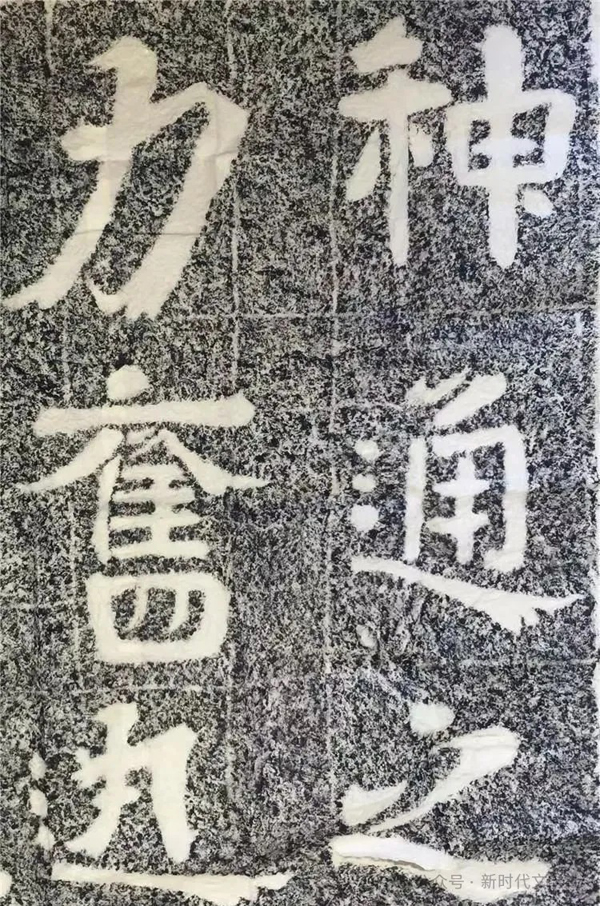 神通之
力奮迅
众号·新时代文